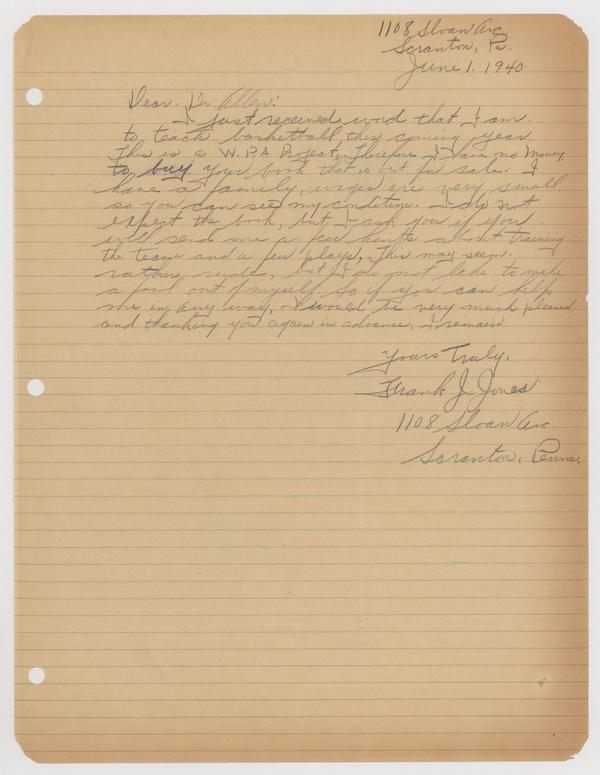 1108 Sloan Ave
Scranton, Pa.
June 1. 1940
Dear Dr Allen:
I just received word that I am
to teach basketball this coming year.
This is a W.P.A Project, Therefore I have no money
to buy your book that is out for sale. I
have a family, wages are very small
so you can see my condition. I do not
expect the book, but I ask you if you
will send me a few hints about training
the team and a few plays, This may seem
rather rude, but I do not like to make
a fool out of myself so if you can help
me in any way, I would be very much pleased
and thanking you again in advance, I remain
Yours Truly.
Frank J. Jones
1108 Sloan Ave
Scranton, Penna.